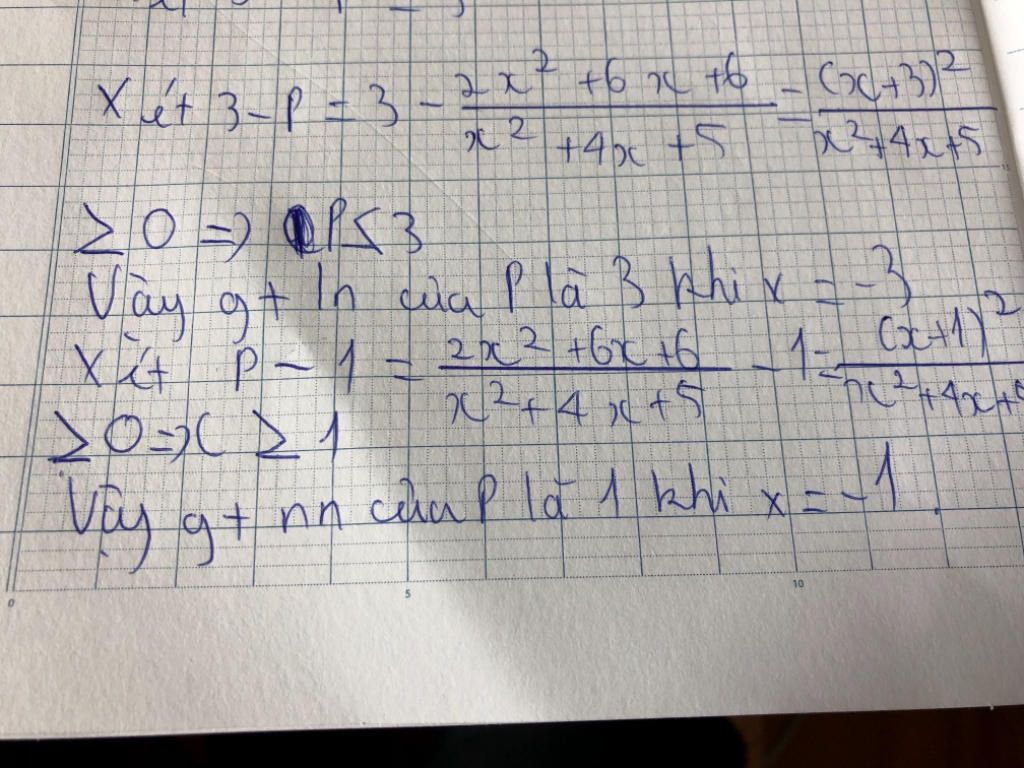 Xét 3 - P = 3 - (2x² + 6x + 6)/(x² + 4x + 5) = (x+3)²/(x² + 4x + 5)
≥ 0 => P ≤ 3
Vậy gt ln của P là 3 khi x = -3
Xét P - 1 = (2x² + 6x + 6)/(x² + 4x + 5) - 1 = (x+1)²/(x² + 4x + 5
≥ 0 => x ≥ 1
Vậy gt nn của P là 1 khi x = -1.
0 5 10